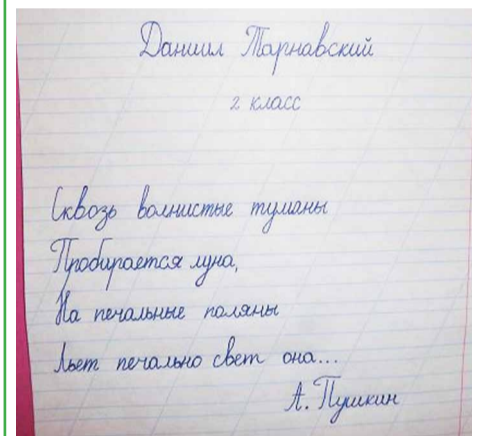 Даниил Тарнавский
2 класс
Сквозь волнистые туманы
Пробирается луна,
На печальные поляны
Льет печально свет она...
А. Пушкин